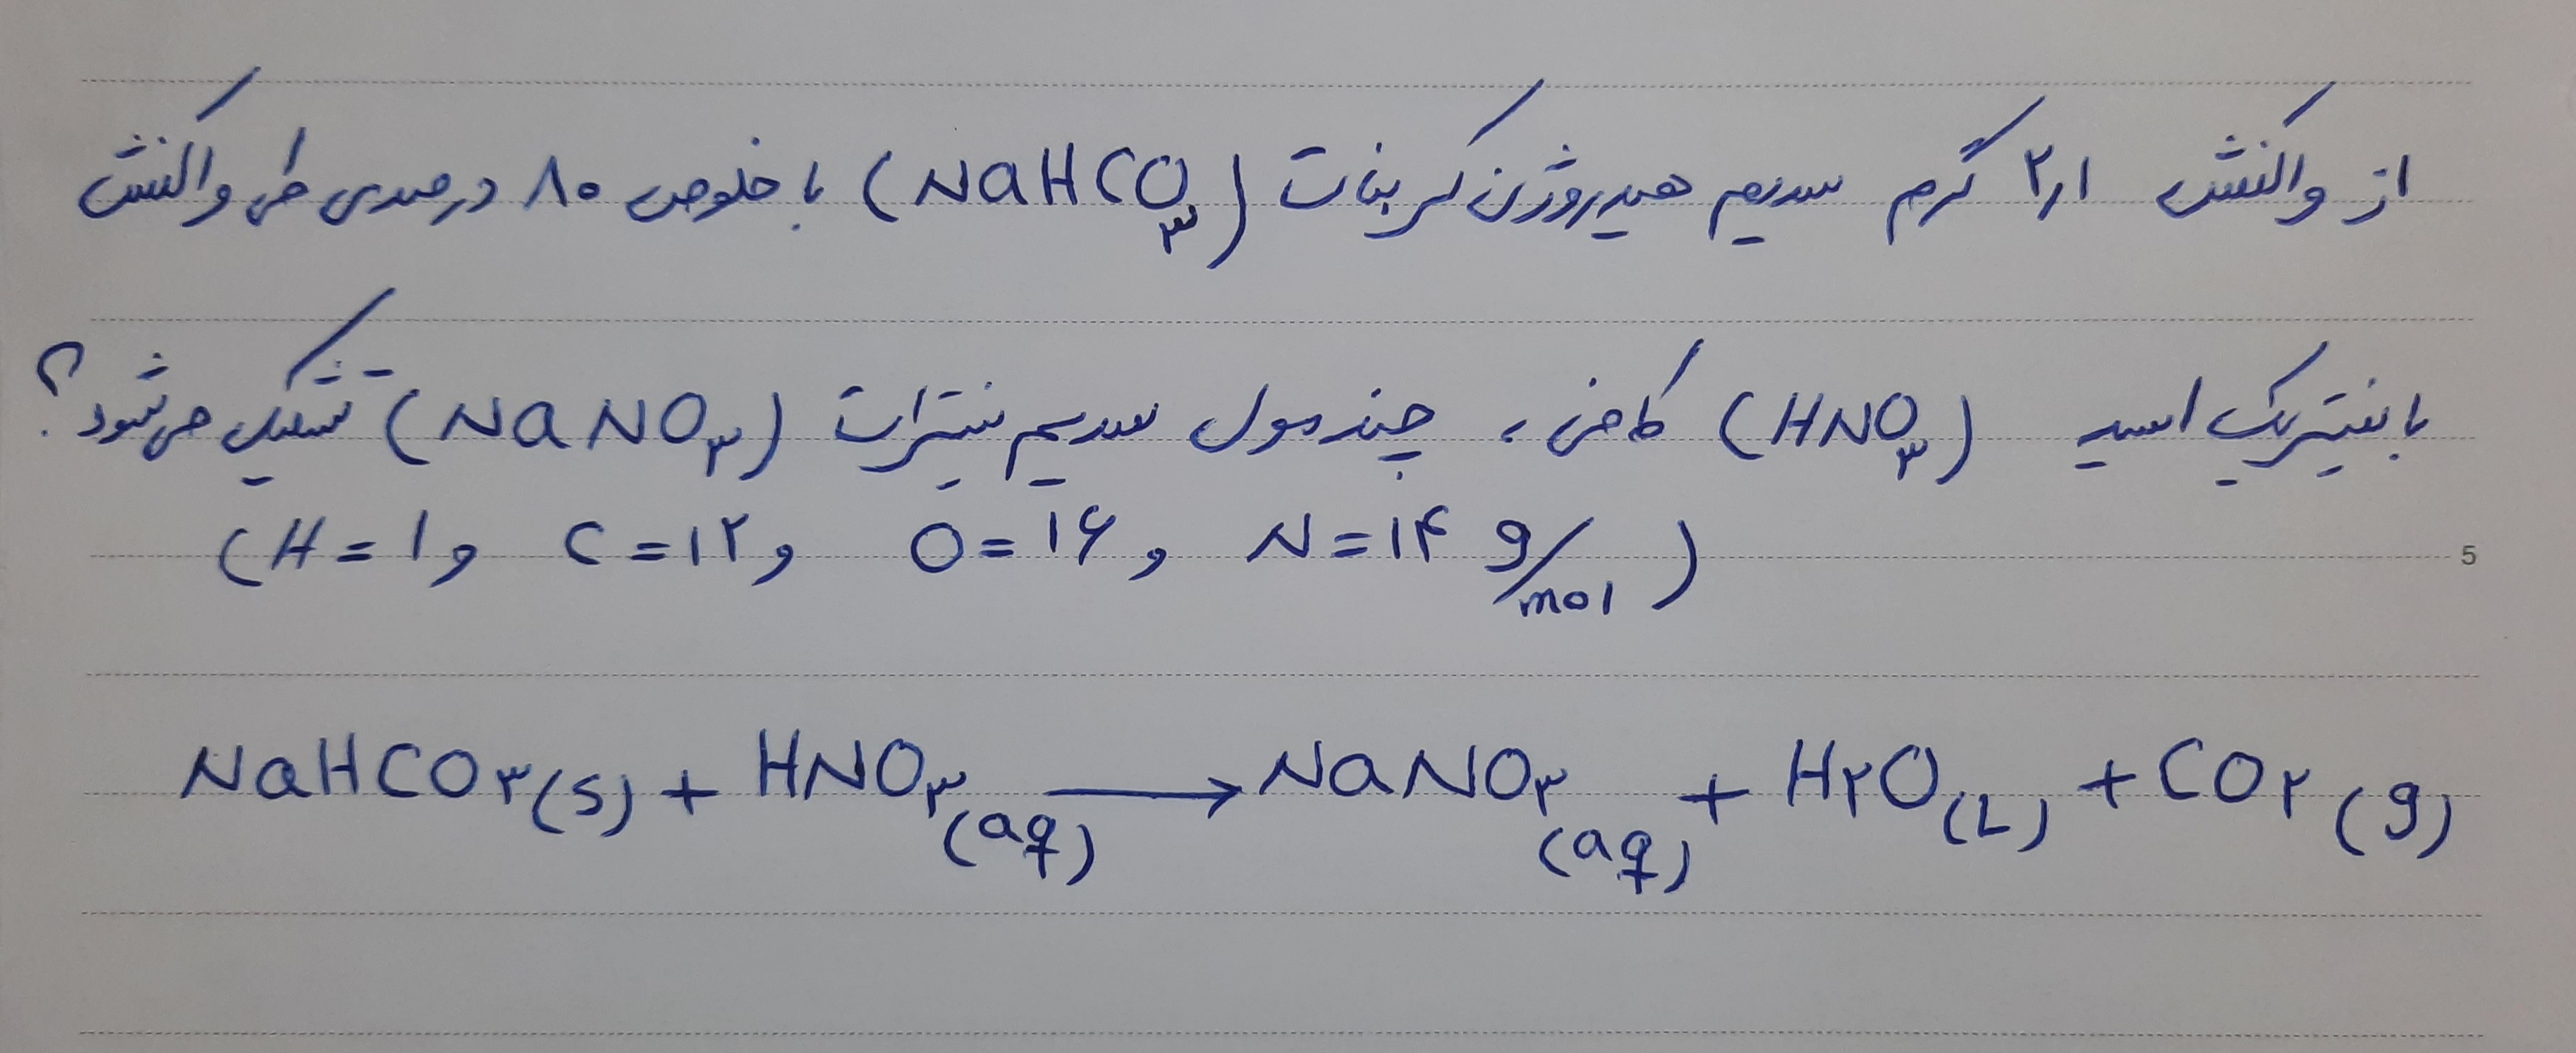 از واکنش ۲٫۱ گرم سدیم هیدروژن کربنات (NaHCO۳) با خلوص ۸۰ درصدی طی واکنش
با نیتریک اسید (HNO۳) کافی، چند مول سدیم نیترات (NaNO۳) تشکیل می‌شود؟
(H = ۱ و C = ۱۲ و O = ۱۶ و N = ۱۴ g/mol)
5
NaHCO۳(s) + HNO۳(aq) → NaNO۳(aq) + H۲O(L) + CO۲(g)